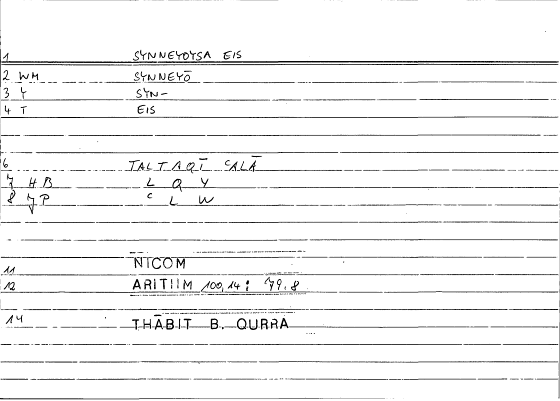 1 SYNNEYOYSA EIS
2 WH SYNNEYŌ
3 Y SYN-
4 T EIS
6 TALTAQĪ ʿALĀ
7 HB L Q Y
8 JP ʿ L W
11 NICOM
12 ARITIIM 100,14 : 79.8
14 THĀBIT B. QURRA